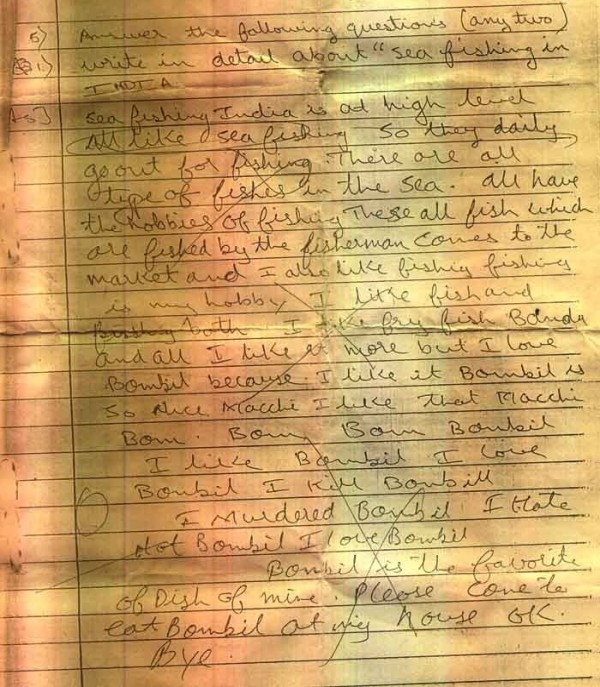 5) Answer the following questions (any two)
Q1) write in detail about "sea fishing in
INDIA
Ans] sea fishing India is at high level
All like sea fishing so they daily
go out for fishing. There are all
type of fishes in the sea. All have
the hobbies of fishing These all fish which
are fished by the fisherman comes to the
market and I also like fishig fishing
is my hobby I like fish and
fishing both I like fry fish Banda
and all I like it more but I love
Bombil because I like it Bombil is
so Nice Macchi I like that Macchi
Bom. Bom Bom Bombil
I like Bombil I love
Bombil I Kill Bombill
I Murdered Bombil I Hate
Not Bombil I love Bombil
Bombil is the favorite
of Dish of mine. Please Come to
eat Bombil at my house OK.
Bye.